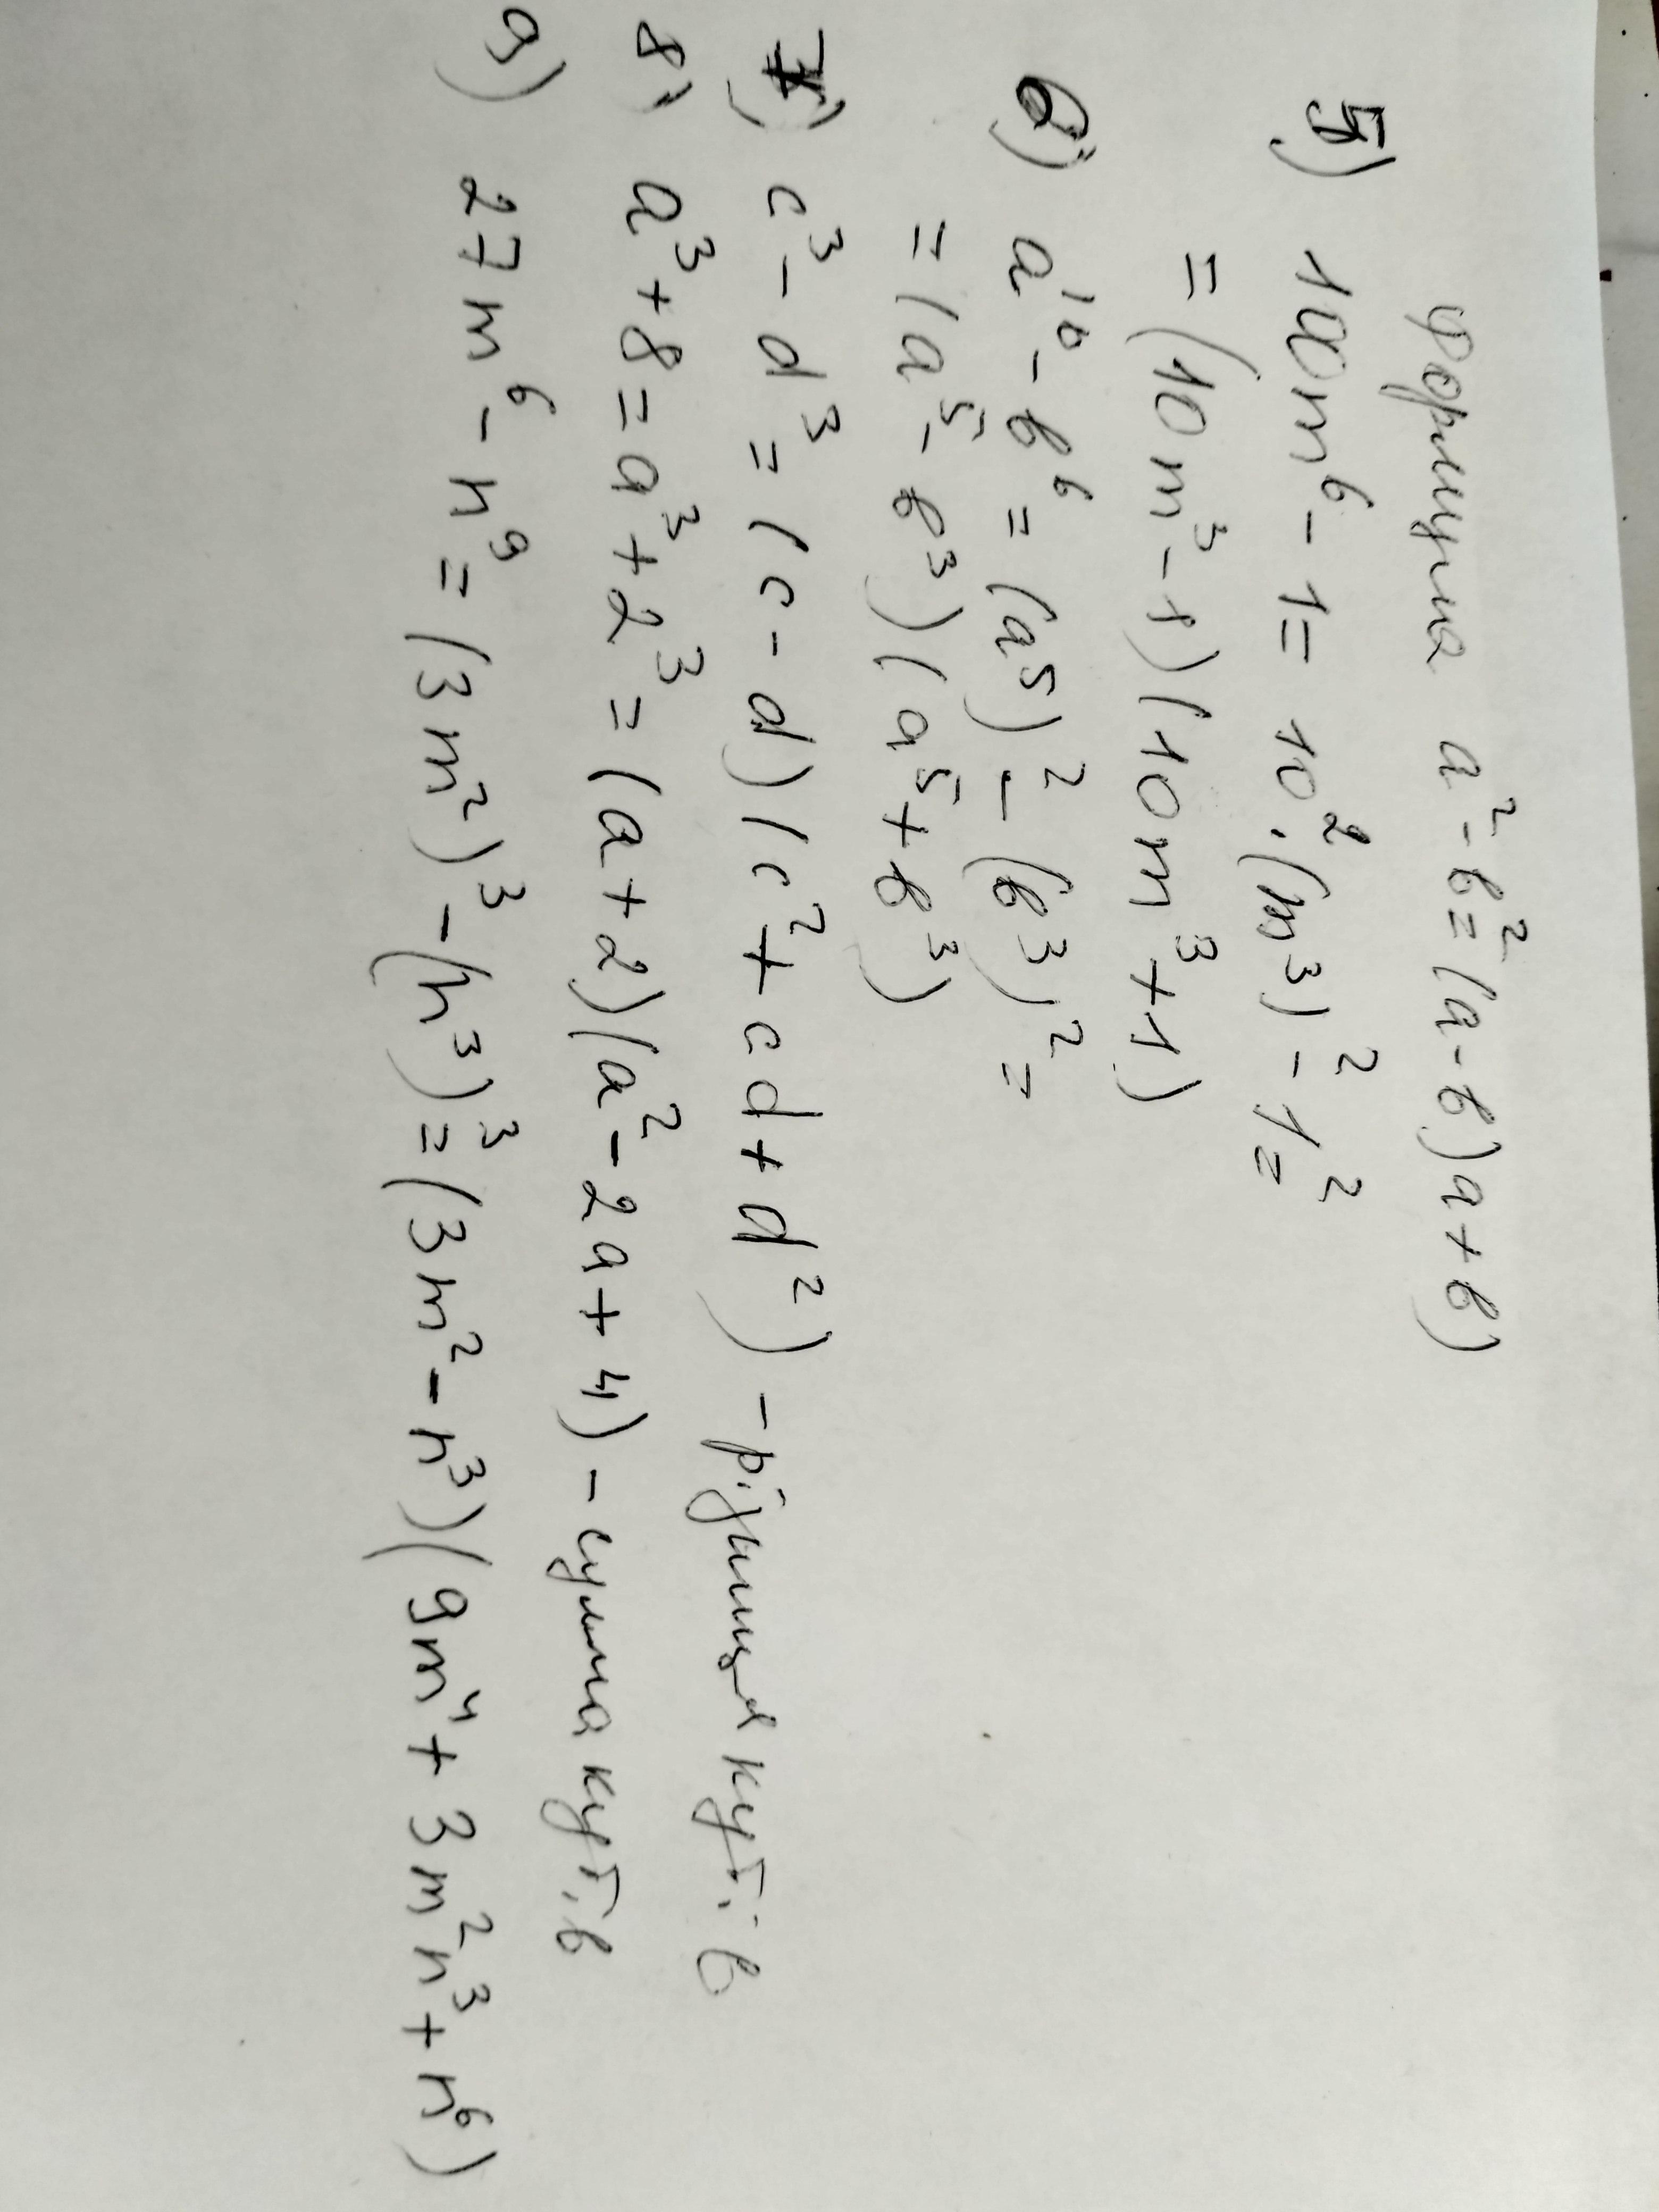 формула a² - b² = (a - b)a + b)
5) 100m⁶ - 1 = 10² · (m³)² - 1² =
= (10m³ - 1)(10m³ + 1)
6) a¹⁰ - b⁶ = (a⁵)² - (b³)² =
= (a⁵ - b³)(a⁵ + b³)
7) c³ - d³ = (c - d)(c² + cd + d²) - різниця кубів
8) a³ + 8 = a³ + 2³ = (a + 2)(a² - 2a + 4) - сумма кубів
9) 27m⁶ - n⁹ = (3m²)³ - (n³)³ = (3m² - n³)(9m⁴ + 3m²n³ + n⁶)